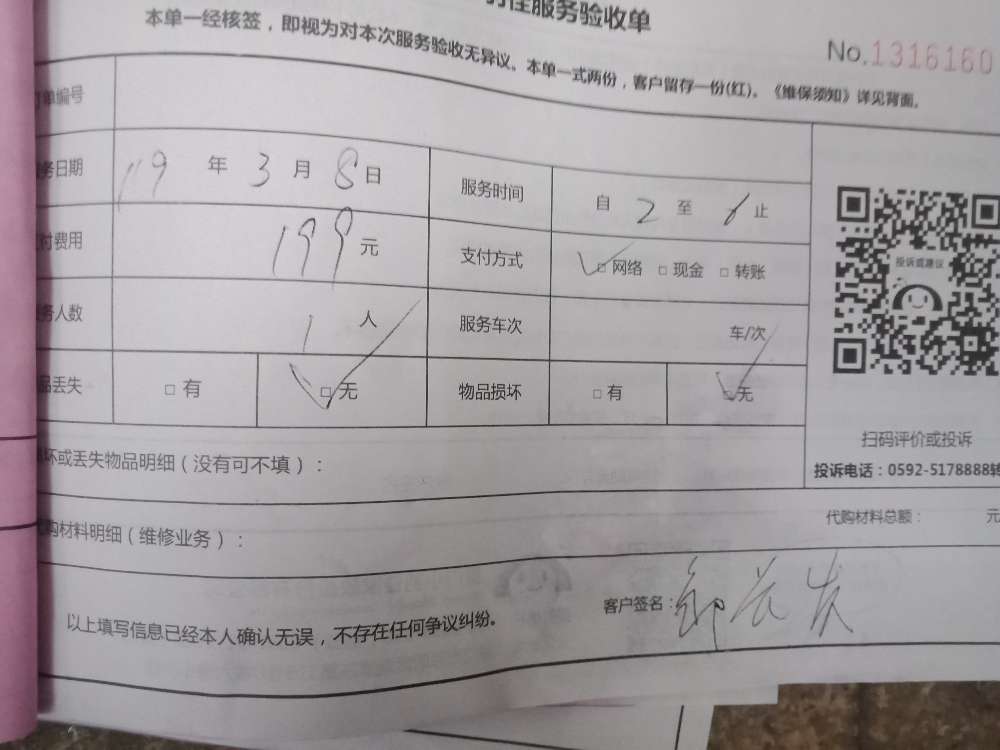 服务验收单
本单一经核签，即视为对本次服务验收无异议。本单一式两份，客户留存一份(红)。《维保须知》详见背面。
No.1316160
单编号
务日期 19 年 3 月 8 日 服务时间 自 2 至 6 止
付费用 199 元 支付方式 ✓□ 网络 □ 现金 □ 转账
务人数 1 人 服务车次 车/次
品丢失 □ 有 ✓□ 无 物品损坏 □ 有 ✓□ 无
投诉或建议
扫码评价或投诉
投诉电话：0592-5178888转
坏或丢失物品明细（没有可不填）：
购材料明细（维修业务）： 代购材料总额： 元
以上填写信息已经本人确认无误，不存在任何争议纠纷。 客户签名：